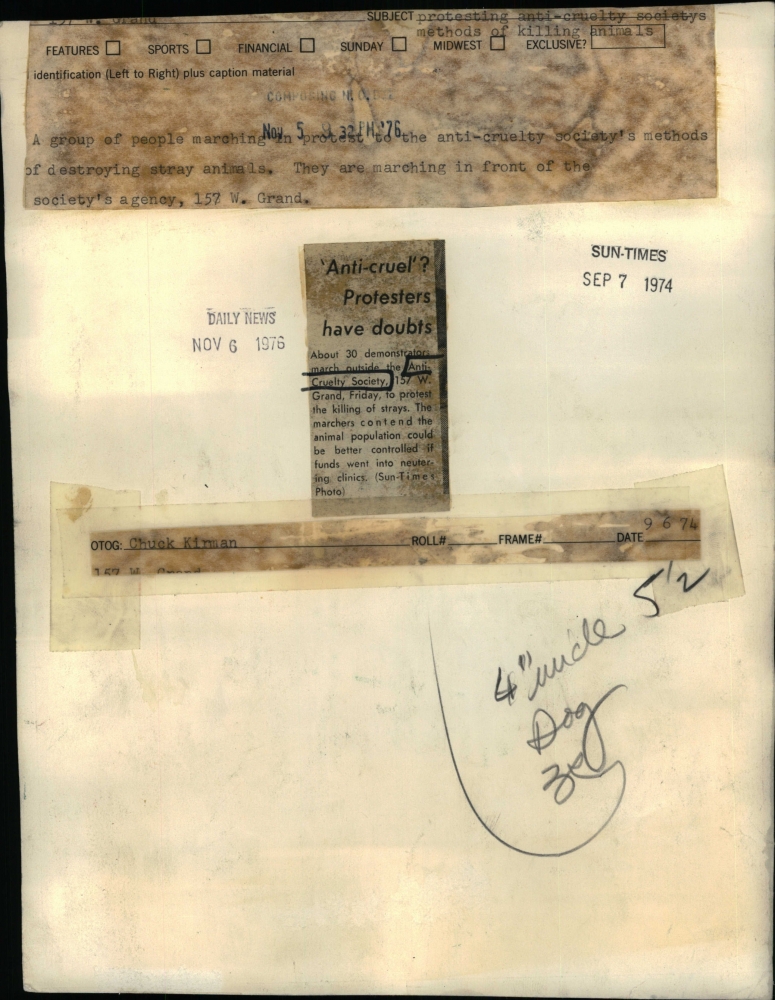 157 W. Grand
SUBJECT protesting anti-cruelty societys
methods of killing animals
FEATURES SPORTS FINANCIAL SUNDAY MIDWEST EXCLUSIVE?
identification (Left to Right) plus caption material
COMPOSING
Nov 5 9 32 PM '76
A group of people marching in protest to the anti-cruelty society's methods
of destroying stray animals. They are marching in front of the
society's agency, 157 W. Grand.
SUN-TIMES
SEP 7 1974
DAILY NEWS
NOV 6 1976
'Anti-cruel'?
Protesters
have doubts
About 30 demonstrators
march outside the Anti-
Cruelty Society, 157 W.
Grand, Friday, to protest
the killing of strays. The
marchers contend the
animal population could
be better controlled if
funds went into neuter-
ing clinics. (Sun-Times
Photo)
OTOG: Chuck Kirman ROLL# FRAME# DATE 9 6 74
157 W. Grand
4" wide 5 1/2
Dog